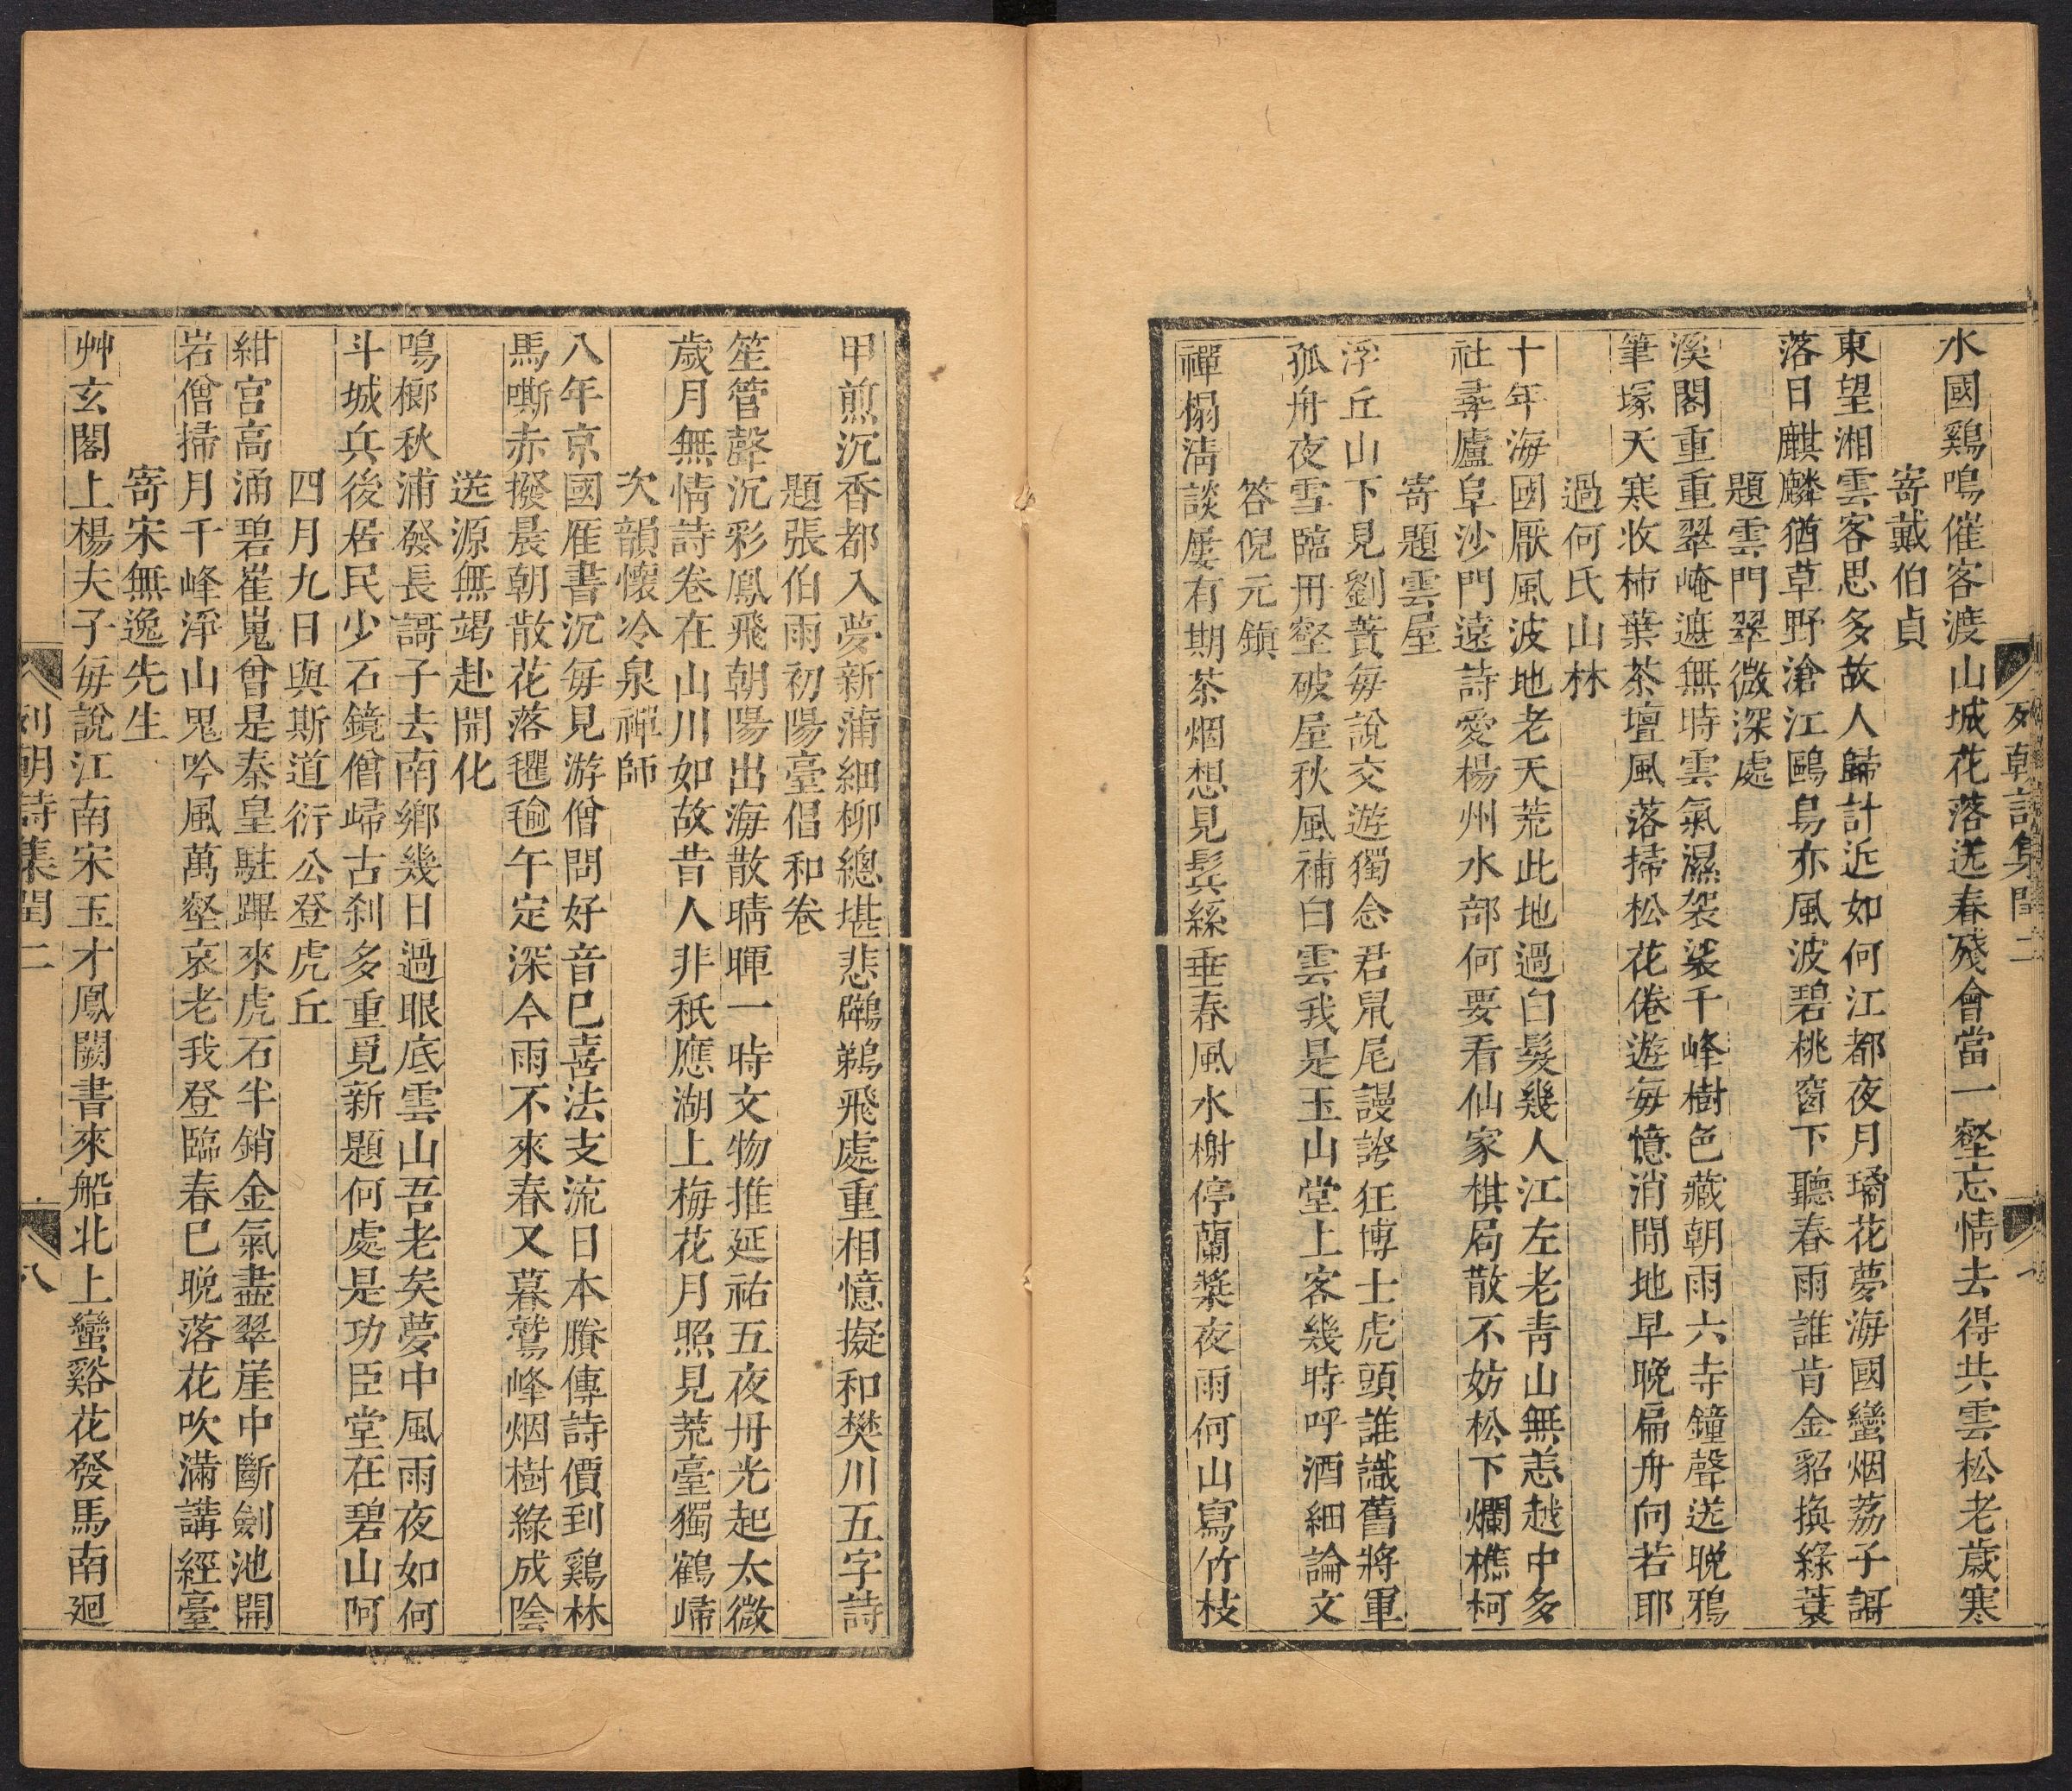 列朝詩集閏二
水國鷄鳴催客渡山城花落送春殘會當一壑忘情去得共雲松老歲寒
寄戴伯貞
東望湘雲客思多故人歸計近如何江都夜月璚花夢海國蠻烟荔子謌
落日麒麟猶草野滄江鷗鳥亦風波碧桃窗下聽春雨誰肯金貂換綠蓑
題雲門翠微深處
溪閣重重翠崦遮無時雲氣濕袈裟千峰樹色藏朝雨六寺鐘聲送晚鴉
筆塚天寒收柿葉茶壇風落掃松花倦遊每憶消閒地早晚扁舟向若耶
過何氏山林
十年海國厭風波地老天荒此地過白髮幾人江左老青山無恙越中多
社尋廬阜沙門遠詩愛楊州水部何要看仙家棋局散不妨松下爛樵柯
寄題雲屋
浮丘山下見劉蕡每說交遊獨念君鼠尾謾誇狂博士虎頭誰識舊將軍
孤舟夜雪臨丹壑破屋秋風補白雲我是玉山堂上客幾時呼酒細論文
答倪元鎮
禪榻清談屢有期茶烟想見鬂絲垂春風水榭停蘭槳夜雨何山寫竹枝
甲煎沉香都入夢新蒲細柳總堪悲鸊鵜飛處重相憶擬和樊川五字詩
題張伯雨初陽臺倡和卷
笙管聲沉彩鳳飛朝陽出海散晴暉一時文物推延祐五夜丹光起太微
歲月無情詩卷在山川如故昔人非秖應湖上梅花月照見荒臺獨鶴歸
次韻懷冷泉禪師
八年京國雁書沉每見游僧問好音巳喜法支流日本賸傳詩價到鷄林
馬嘶赤撥晨朝散花落氍毹午定深今雨不來春又暮鷲峰烟樹綠成陰
送源無竭赴開化
鳴榔秋浦發長謌子去南鄉幾日過眼底雲山吾老矣夢中風雨夜如何
斗城兵後居民少石鏡僧歸古刹多重覓新題何處是功臣堂在碧山阿
四月九日與斯道衍公登虎丘
紺宮高涌碧崔嵬曾是秦皇駐蹕來虎石半銷金氣盡翠崖中斷劍池開
岩僧掃月千峰淨山鬼吟風萬壑哀老我登臨春巳晚落花吹滿講經臺
寄宋無逸先生
艸玄閣上楊夫子每說江南宋玉才鳳闕書來船北上蠻谿花發馬南廻
列朝詩集閏二
八